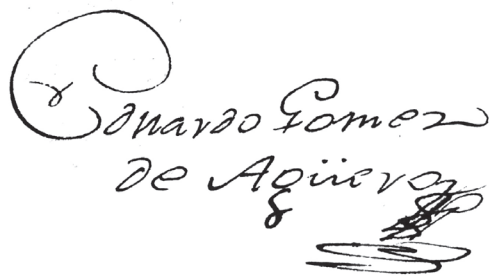 Eduardo Gomez
de Agüero